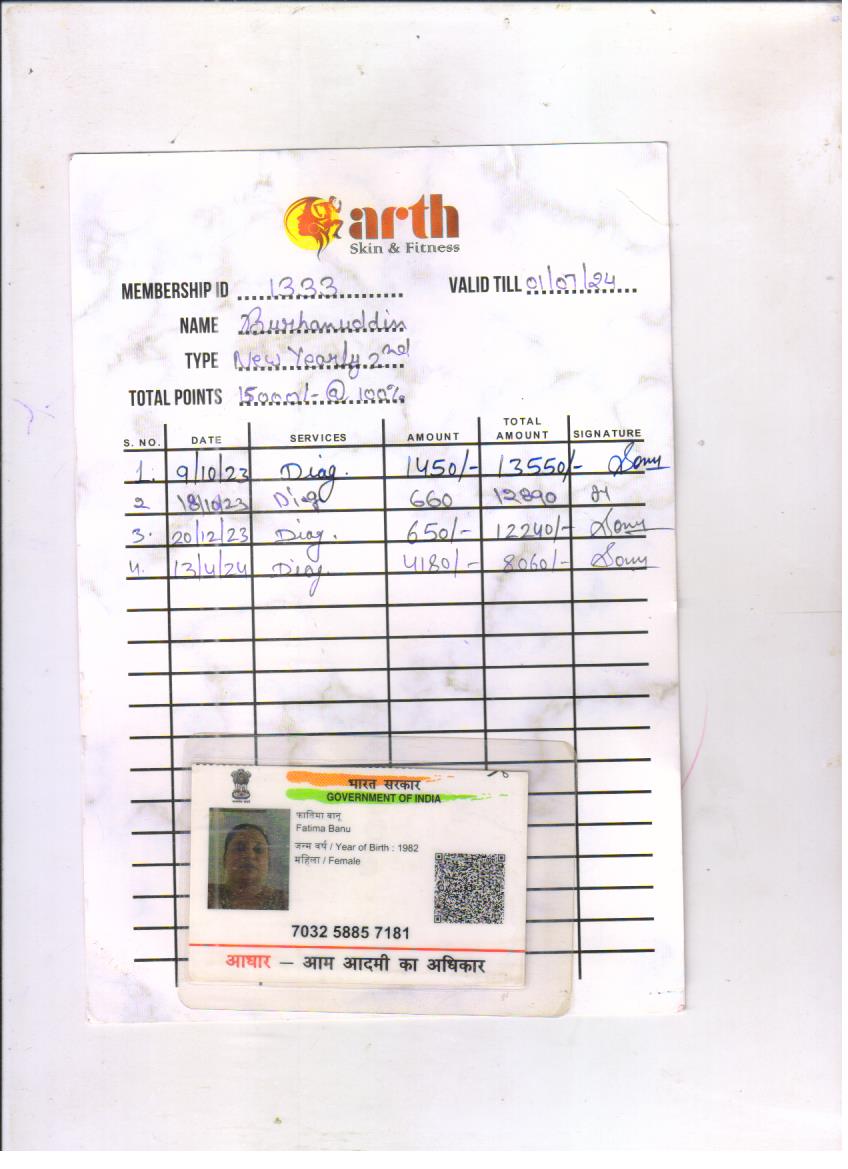 arth
Skin & Fitness
MEMBERSHIP ID 1333 VALID TILL 01/07/24
NAME Burhanuddin
TYPE New Yearly 2nd
TOTAL POINTS 15000/- @ 100%
S. NO. DATE SERVICES AMOUNT TOTAL AMOUNT SIGNATURE
1. 9/10/23 Diag. 1450/- 13550/- Sonu
2 18/10/23 Diag 660 12890
3. 20/12/23 Diag. 650/- 12240/- Sonu
4. 13/4/24 Diag. 4180/- 8060/- Sonu
भारत सरकार
GOVERNMENT OF INDIA
फातिमा बानू
Fatima Banu
जन्म वर्ष / Year of Birth : 1982
महिला / Female
7032 5885 7181
आधार — आम आदमी का अधिकार